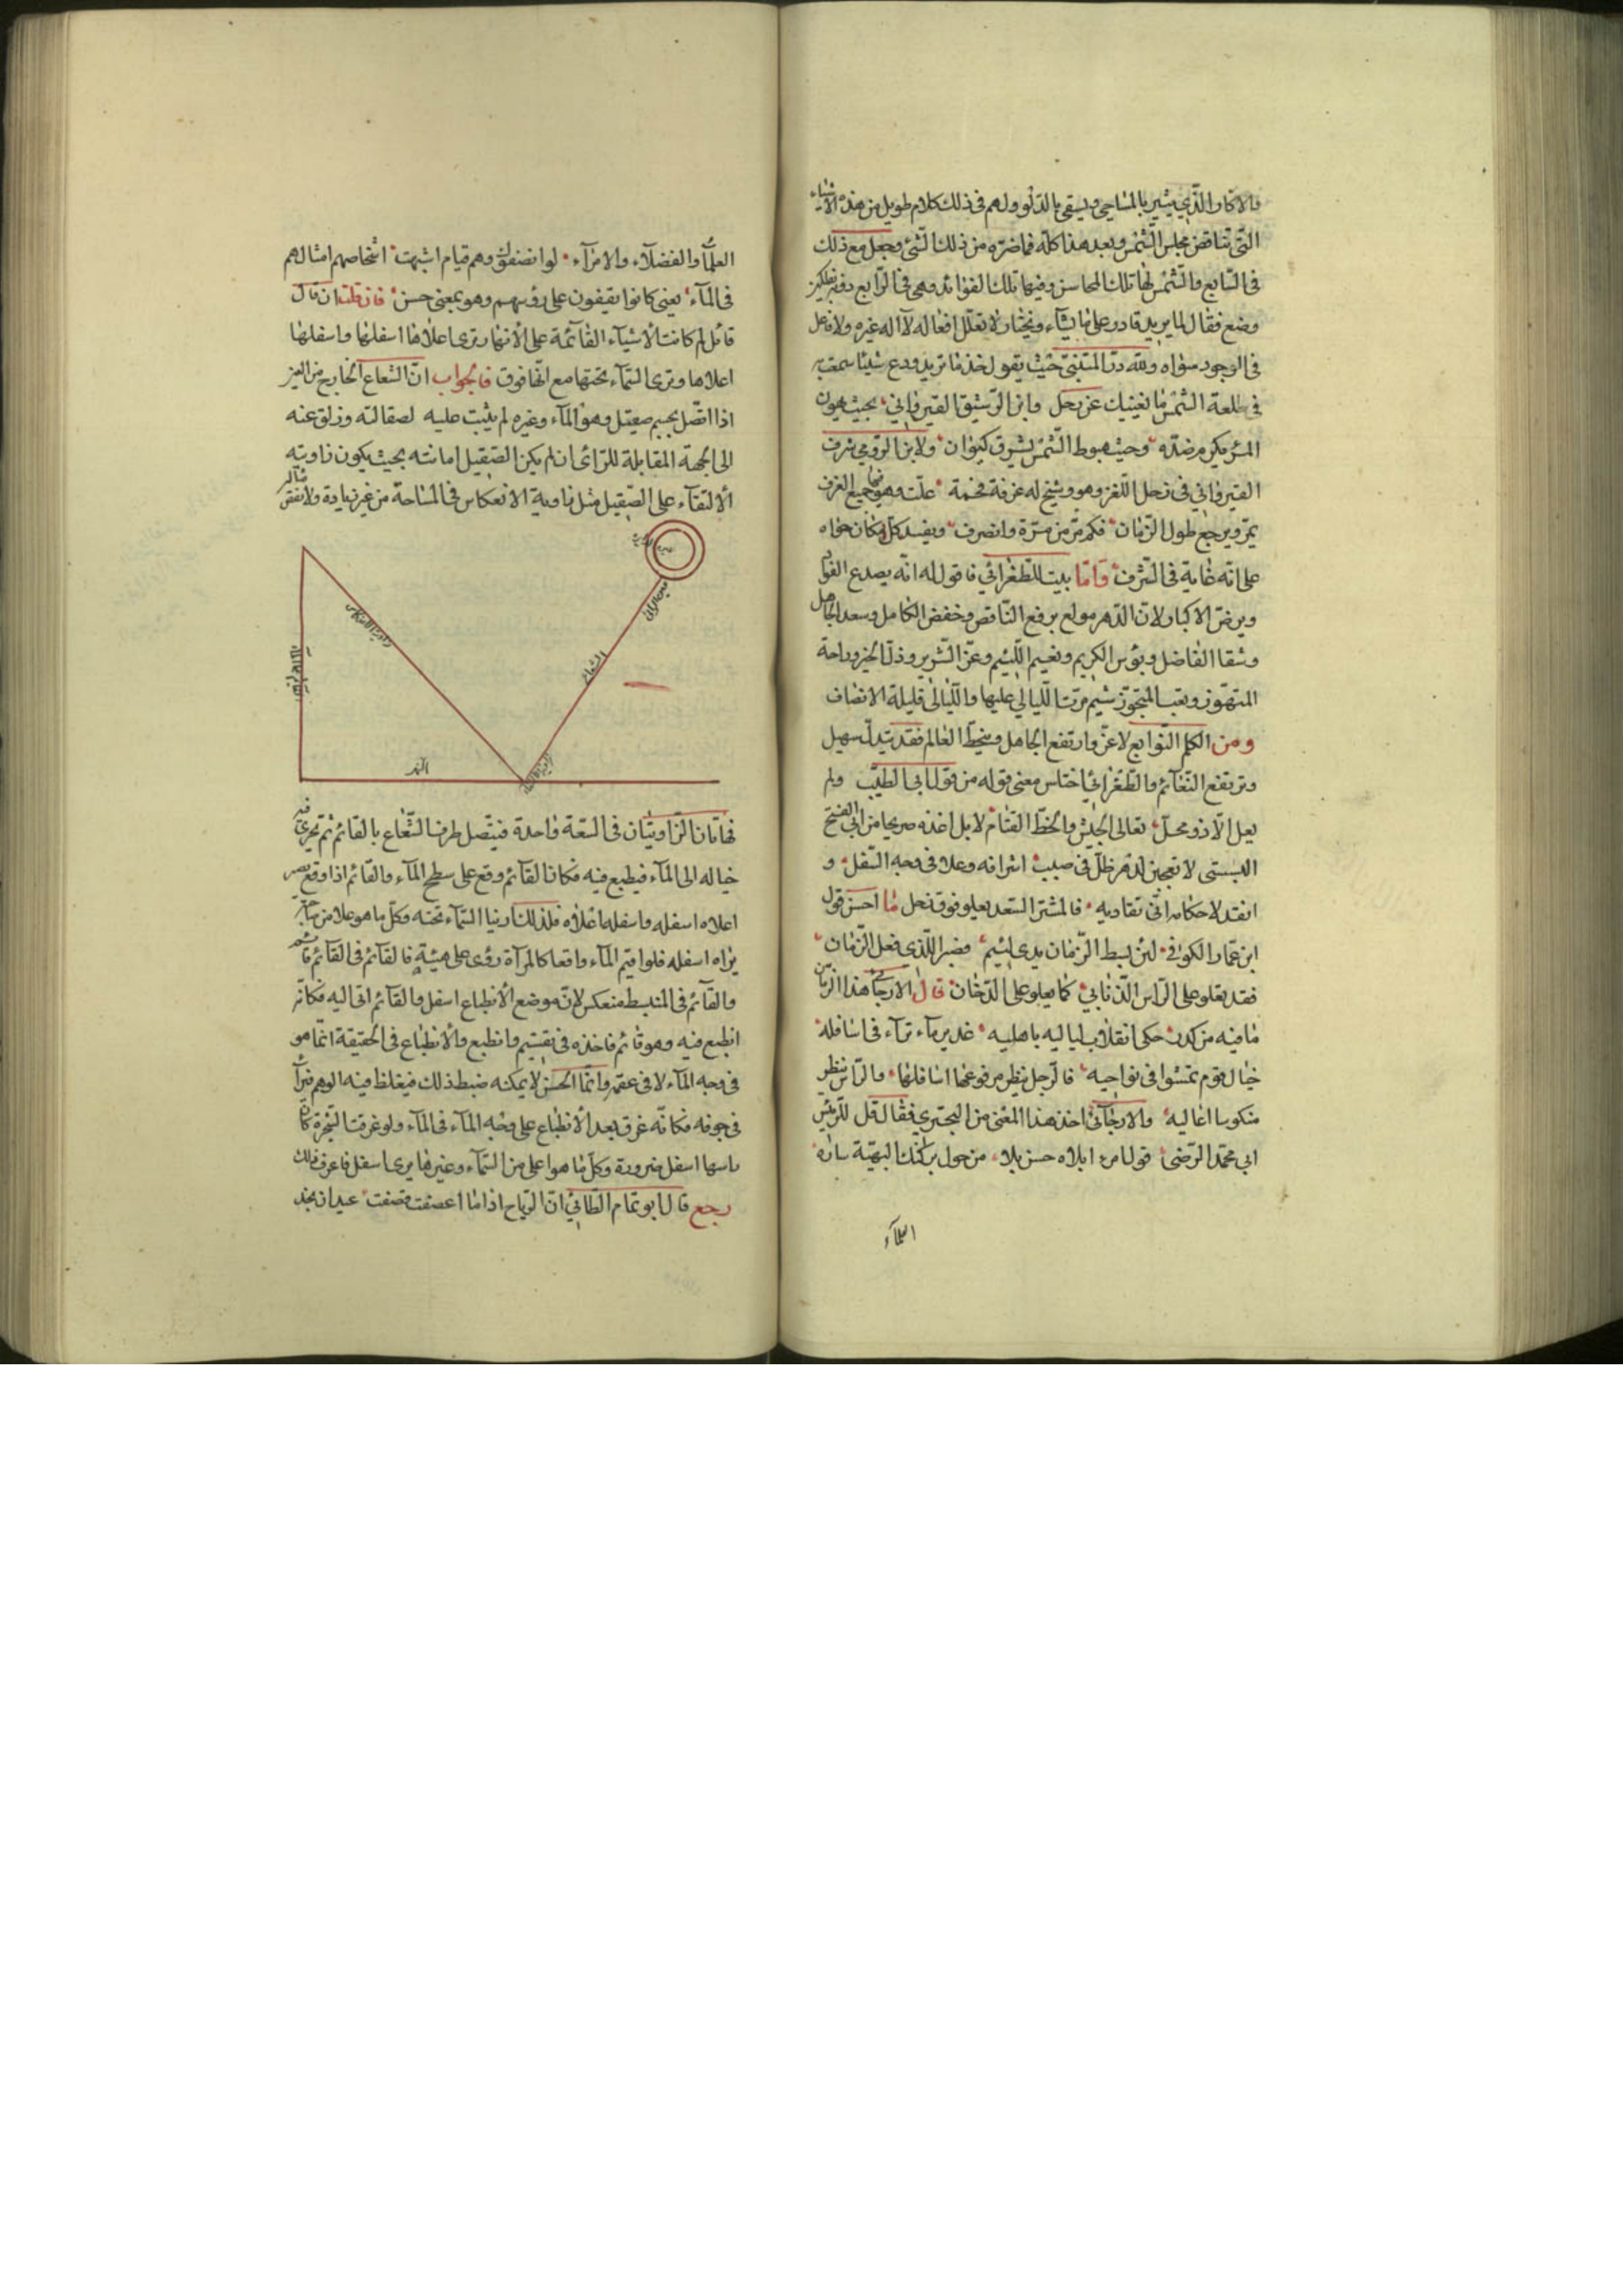 والاكار الذي يثير بالمساحي ويسقي بالدلو ولهم في ذلك كلام طويل من هذه الاشياء
التي تناقض مجلس الشمس وبعد هذا كله فما ضره من ذلك الشئ وجعل مع ذلك
في السابع والشمس لها تلك المحاسن وفيها تلك الفوائد وهي في الرابع دونه
وضع فقال لما يريد قادر على ما يشاء ويختار لا تعلل افعاله لا اله غيره ولا فاعل
في الوجود سواه ولله در المتنبي حيث يقول خذ ما تريد ودع شيئا سمعت به
في طلعة الشمس ما يغنيك عن زحل وابن الرشيق القيرواني بحيث يهون
المرء يكرم ضده وحيث هبوط الشمس يشرق كيوان ولابن الرومي شرف
القيرواني في زحل اللغز وهو وشيخ له غرفة فخمة علت وهو جميع الغرف
يمر ويرجع طول الزمان فكم مر من مرة وانصرف ويفسد كل مكان حواه
على انه غاية في الشرف واما بيت الطغرائي فاقول له انه يصدع الفؤاد
ويرض الاكباد لان الدهر مولع برفع الناقص وخفض الكامل وسعد الجاهل
وشقا الفاضل وبؤس الكريم ونعيم اللئيم وعز الشرير وذل الخير وراحة
المتهوز وتعب المتجوز شيم مرت الليالي عليها والليالى قليلة الانصاف
ومن الكلم النوابغ لا عز وارتفع الجاهل وينحط العالم فقد يتدلى سهيل
وترتفع النعائم والطغرائي اختلس معنى قوله من قول ابي الطيب ولم
يعل الا ذو محل تعالى الجيش وانحط القتام لا بل اخذه صريحا من ابي الفتح
البستي لا تعجبن لدهر ظل في صبب اشرافه وعلا في وجه السفل و
انقد لاحكامه انى تقاد به فالمشتري السعد يعلو فوقه زحل ما احسن قول
ابن عمار الكوفي لئن بسط الزمان يدى لئيم فصبرا للذي فعل الزمان
فقد تعلو على الراس الذنابي كما يعلو على الدخان قال الارجاني هذا الزمان
ما فيه من كدر حكى انقلاب لياليه باهليه غدير ماء تراء في اسافله
خيال قوم تمشوا في نواحيه فالرجل ينظر مرفوعها اسافلها والراس ينظر
منكوسا اعاليه والارجاني اخذ هذا المعنى من البحتري فقال قل للرئيس
ابي محمد الرضي قول امرء ابلاه حسن بلاء من حول بركتك البهية سادة
العلماء
العلماء والفضلاء والامراء لو انصفوك وهم قيام اشبهت اشخاصهم امثالهم
في الماء يعني كانوا يقفون على رؤسهم وهو بمعنى حسن فان قلت ان قال
قائل لم كانت الاشياء القائمة على الانهار ترى اعلاها اسفلها واسفلها
اعلاها وترى السماء تحتها مع انها فوق فالجواب ان الشعاع الخارج من العين
اذا اتصل بجسم صقيل وهو الماء وغيره لم يثبت عليه لصقالته وزلق عنه
الى الجهة المقابلة للرائي ان لم يكن الصقيل امانته بحيث يكون زاويته
الالتقاء على الصقيل مثل زاوية الانعكاس في المساحة من غير زيادة ولا نقص مثاله
الشعاع
النهر
فهاتان الزاويتان في السعة واحدة فيتصل طرف الشعاع بالقائم ثم يحرى فيه
خياله الى الماء فيطبع فيه فكان القائم وقع على سطح الماء والقائم اذا وقع يصير
اعلاه اسفله واسفله اعلاه فلذلك راينا السماء تحته وكل ما هو علا من
يراه اسفله فلو اقيم الماء واقعا كالمرآة رؤى على هيئته فالقائم في القائم قائم
والقائم في المنبسط منعكس لانه موضع الانطباع اسفل والقائم اتى اليه فكانه
انطبع فيه وهو قائم فاخذه في تقسيم وانطبع والانطباع في الحقيقة انما هو
في وجه الماء لا في عقره وانما الحس لا يمكنه ضبط ذلك فيغلظ فيه الوهم فيرآه
في جوفه فكانه غرق بعد الانطباع على وجه الماء في الماء ولو غرقت الشجرة كان
راسها اسفل ضرورة وكل ما هو اعلى من السماء وغيرها يرى اسفل فاعرف ذلك
رجع قال ابو تمام الطائي ان الرياح اذا ما اعصفت قصفت عيدان نجد